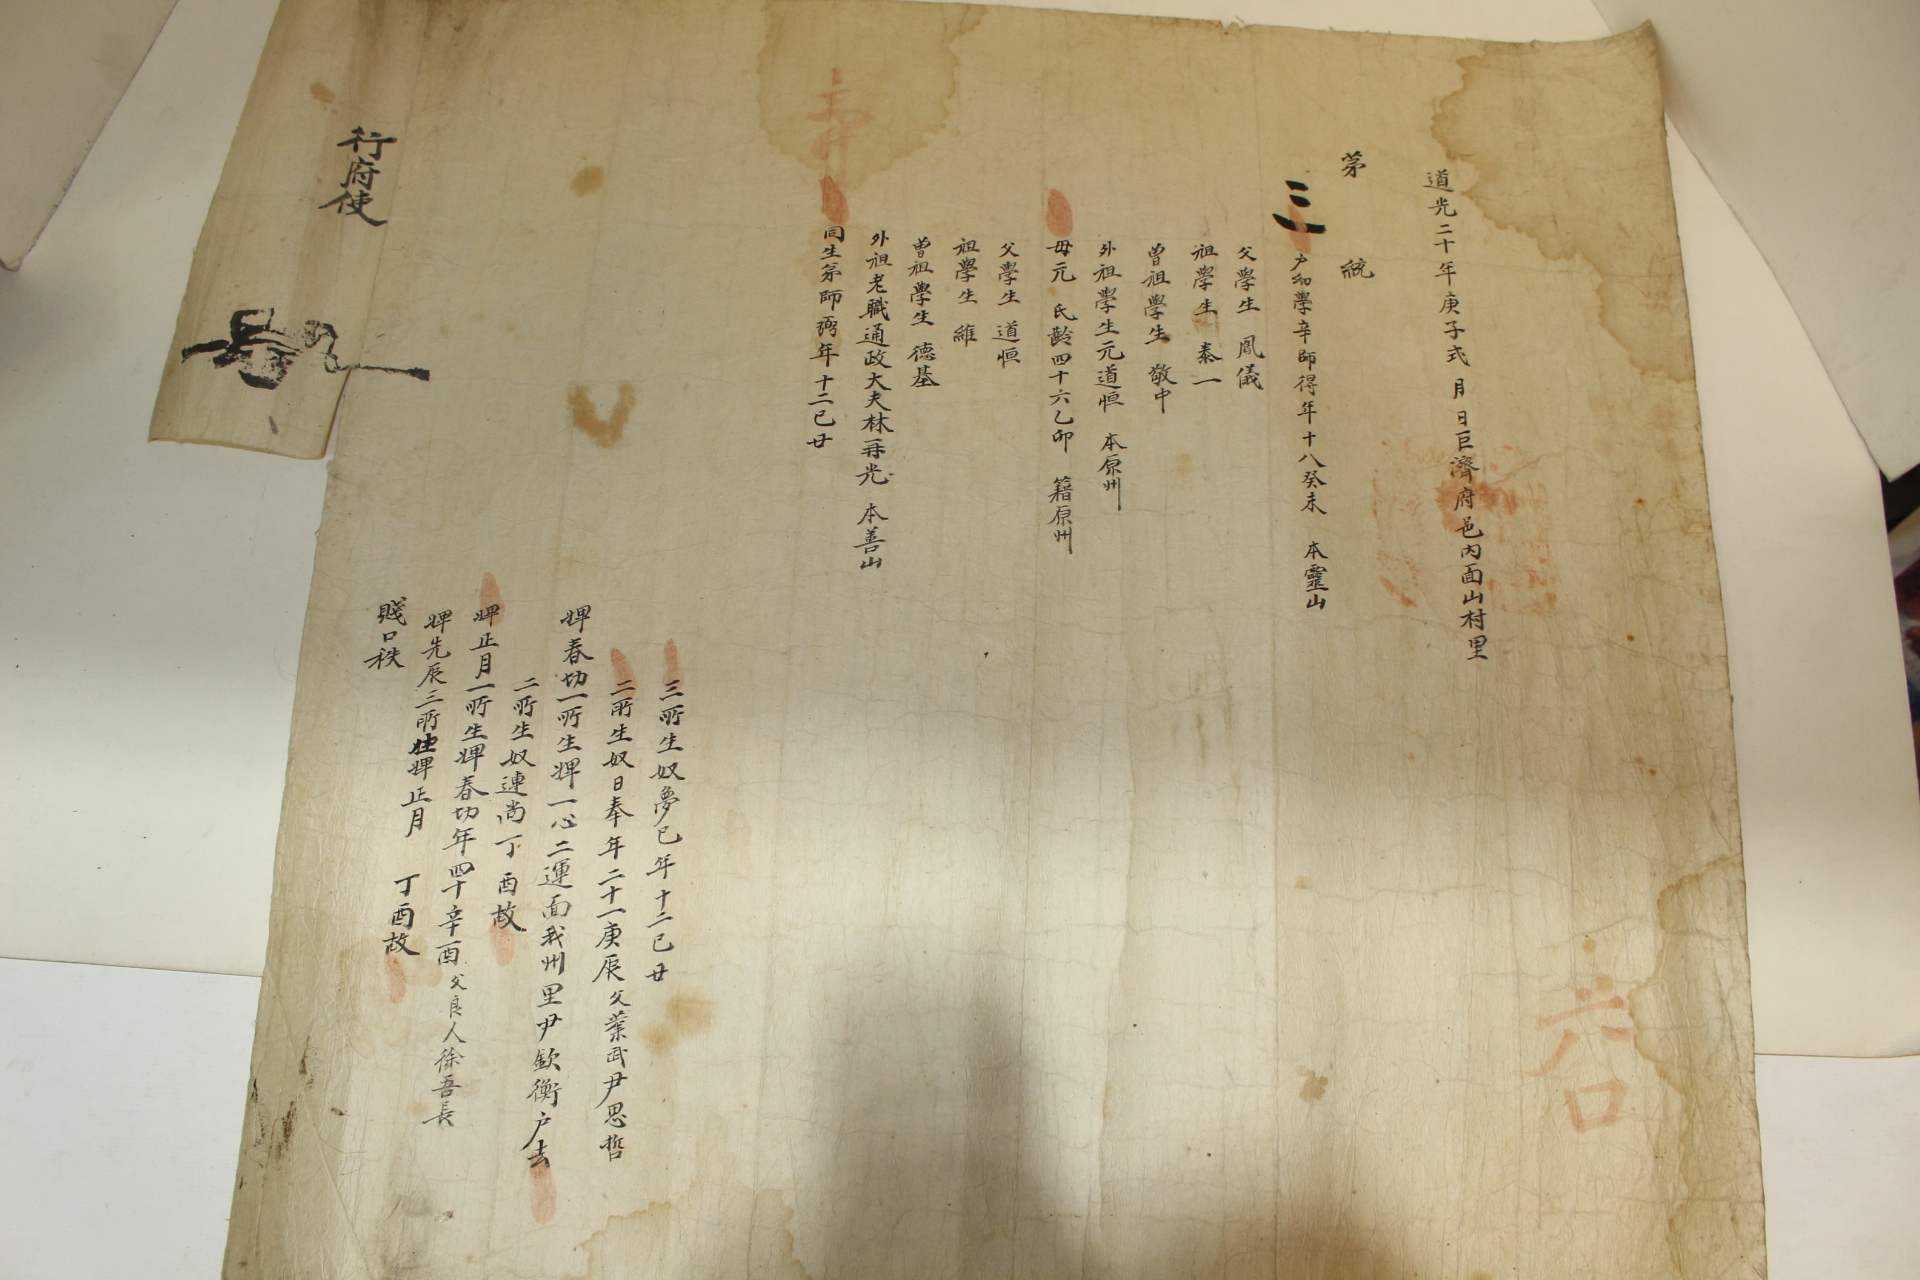 道光二十年庚子式 月 日巨濟府邑內面山村里
第 統
三戶幼學辛師得年十八癸未 本靈山
父學生 鳳儀
祖學生 泰一
曾祖學生 敬中
外祖學生元道恒 本原州
母元 氏齡四十六乙卯 籍原州
父學生 道恒
祖學生 維
曾祖學生 德基
外祖老職通政大夫林再光 本善山
同生弟師弼年十二己丑
三所生奴夢已年十二己丑
二所生奴日奉年二十一庚辰父業武尹思哲
婢春切一所生婢一心二運面我州里尹欽衡戶去
二所生奴連尚丁酉故
婢正月一所生婢春切年四十辛酉父良人徐吾長
婢先辰三所生婢正月 丁酉故
賤口秩
行府使
六口